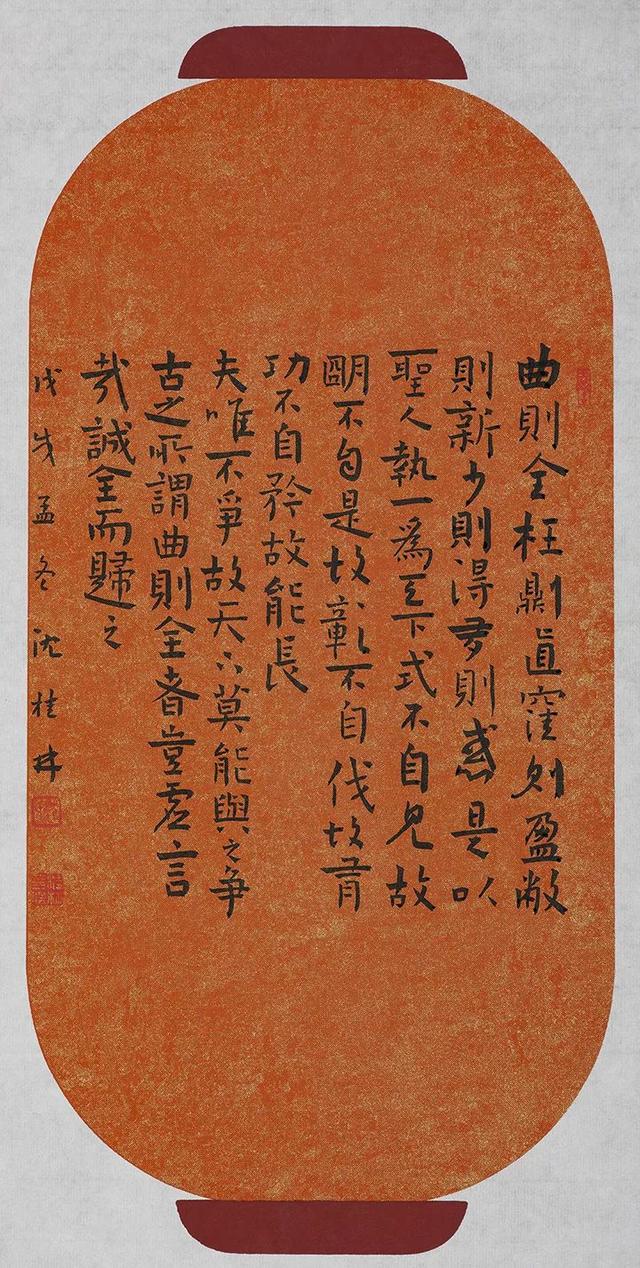 曲則全枉則直窪則盈敝
則新少則得多則惑是以
聖人執一爲天下式不自見故
朙不自是故彰不自伐故有
功不自矜故能長
夫唯不爭故天下莫能與之爭
古之所謂曲則全者豈虛言
哉誠全而歸之
戊戌孟冬沈桂林